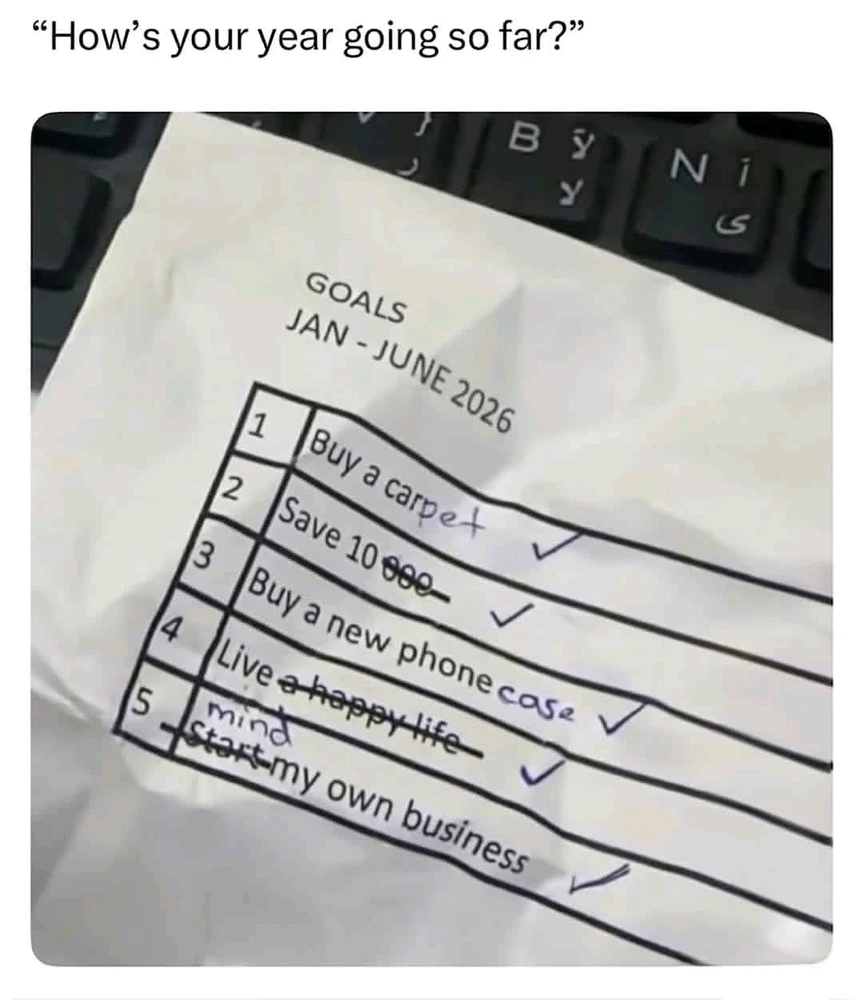 “How’s your year going so far?”
B ў
لا
N ï
ى
GOALS
JAN - JUNE 2026
1 Buy a carpet ✓
2 Save 10 000 ✓
3 Buy a new phone case ✓
4 Live a happy life ✓
mind
5 Start my own business ✓